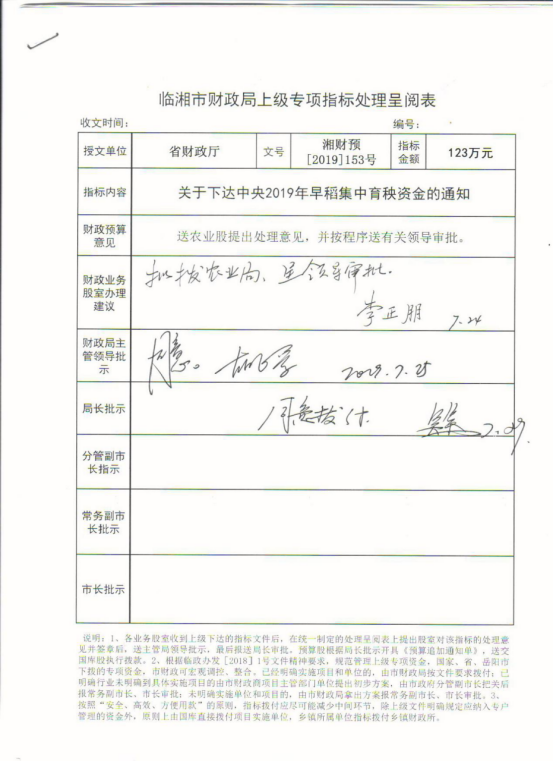 临湘市财政局上级专项指标处理呈阅表
收文时间：
编号：
授文单位 省财政厅 文号 湘财预[2019]153号 指标金额 123万元
指标内容 关于下达中央2019年早稻集中育秧资金的通知
财政预算意见 送农业股提出处理意见，并按程序送有关领导审批。
财政业务股室办理建议 拟拨农业局、呈领导审批.
李正朋 7.24
财政局主管领导批示 同意。 2019.7.25
局长批示 同意拨付. 7.29.
分管副市长指示
常务副市长批示
市长批示
说明：1、各业务股室收到上级下达的指标文件后，在统一制定的处理呈阅表上提出股室对该指标的处理意
见并签章后，送主管领导批示，最后报送局长审批，预算股根据局长批示开具《预算追加通知单》，送交
国库股执行拨款。2、根据临政办发［2018］1号文件精神要求，规范管理上级专项资金，国家、省、岳阳市
下拨的专项资金，市财政可宏观调控、整合，已经明确实施项目和单位的，由市财政局按文件要求拨付；已
明确行业未明确到具体实施项目的由市财政商项目主管部门单位提出初步方案，由市政府分管副市长把关后
报常务副市长、市长审批；未明确实施单位和项目的，由市财政局拿出方案报常务副市长、市长审批。3、
按照“安全、高效、方便用款”的原则，指标拨付应尽可能减少中间环节，除上级文件明确规定应纳入专户
管理的资金外，原则上由国库直接拨付项目实施单位，乡镇所属单位指标拨付乡镇财政所。